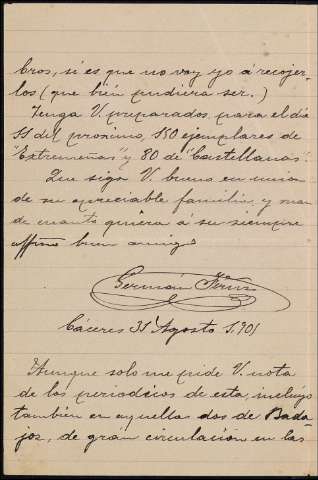 bros, si es que no voy yo á recojer-
los (que bién pudiera ser.)
Tenga V. preparados, para el día
15 del proximo, 150 ejemplares de
"Extremeñas" y 80 de "Castellanas".
Que siga V. bueno en unión
de su apreciable familia, y man
de cuanto quiera á su siempre
affmo buen amigo
Germán
Cáceres 31 Agosto 1.901
Aunque solo me pide V. nota
de los periodicos de esta, incluyo
también en aquellas dos de Bada-
joz, de grán circulación en las